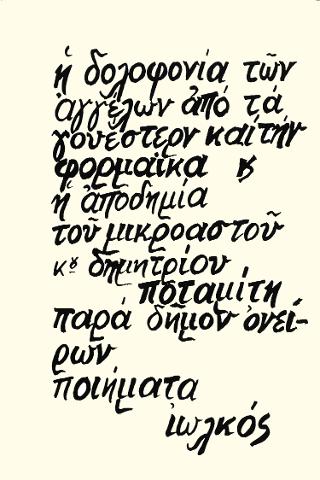 ἡ δολοφονία τῶν
ἀγγέλων ἀπό τά
γουέστερν καί τήν
φορμάικα ϗ
ἡ ἀποδημία
τοῦ μικροαστοῦ
κου δημητρίου
ποταμίτη
παρά δῆμον ὀνεί-
ρων
ποιήματα
ἰωλκός